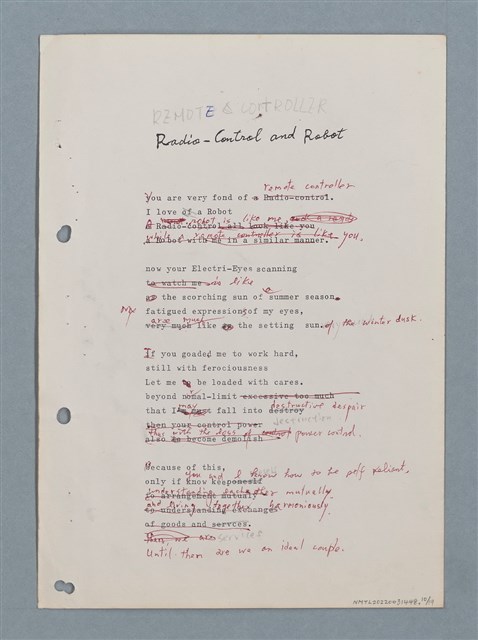 REMOTE CONTROLLER
Radio-Control and Robot
remote controller
You are very fond of a Radio-control.
I love of a Robot
A robot is like me and a
a Radio-control all look like you
while a remote controller is like you.
a Robot with me in a similar manner.
now your Electri-Eyes scanning
to watch me is like
the scorching sun of summer season.
fatigued expressions of my eyes,
are much
very much like the setting sun. of the winter dusk.
If you goaded me to work hard,
still with ferociousness
Let me be loaded with cares.
beyond nomal-limit excessive too much
may destructive despair
that I fall into destroy
destruction
then your control power
then with the loss of control power control.
also to become demolish
Because of this,
You and I know how to be self relient,
only if know keeponeslf
understanding each other mutually
to arrangement mutualy
and living together harmoniously.
to understanding exchanges
of goods and servces.
then we are services
Until then are we an ideal couple.
NMTL20220031448